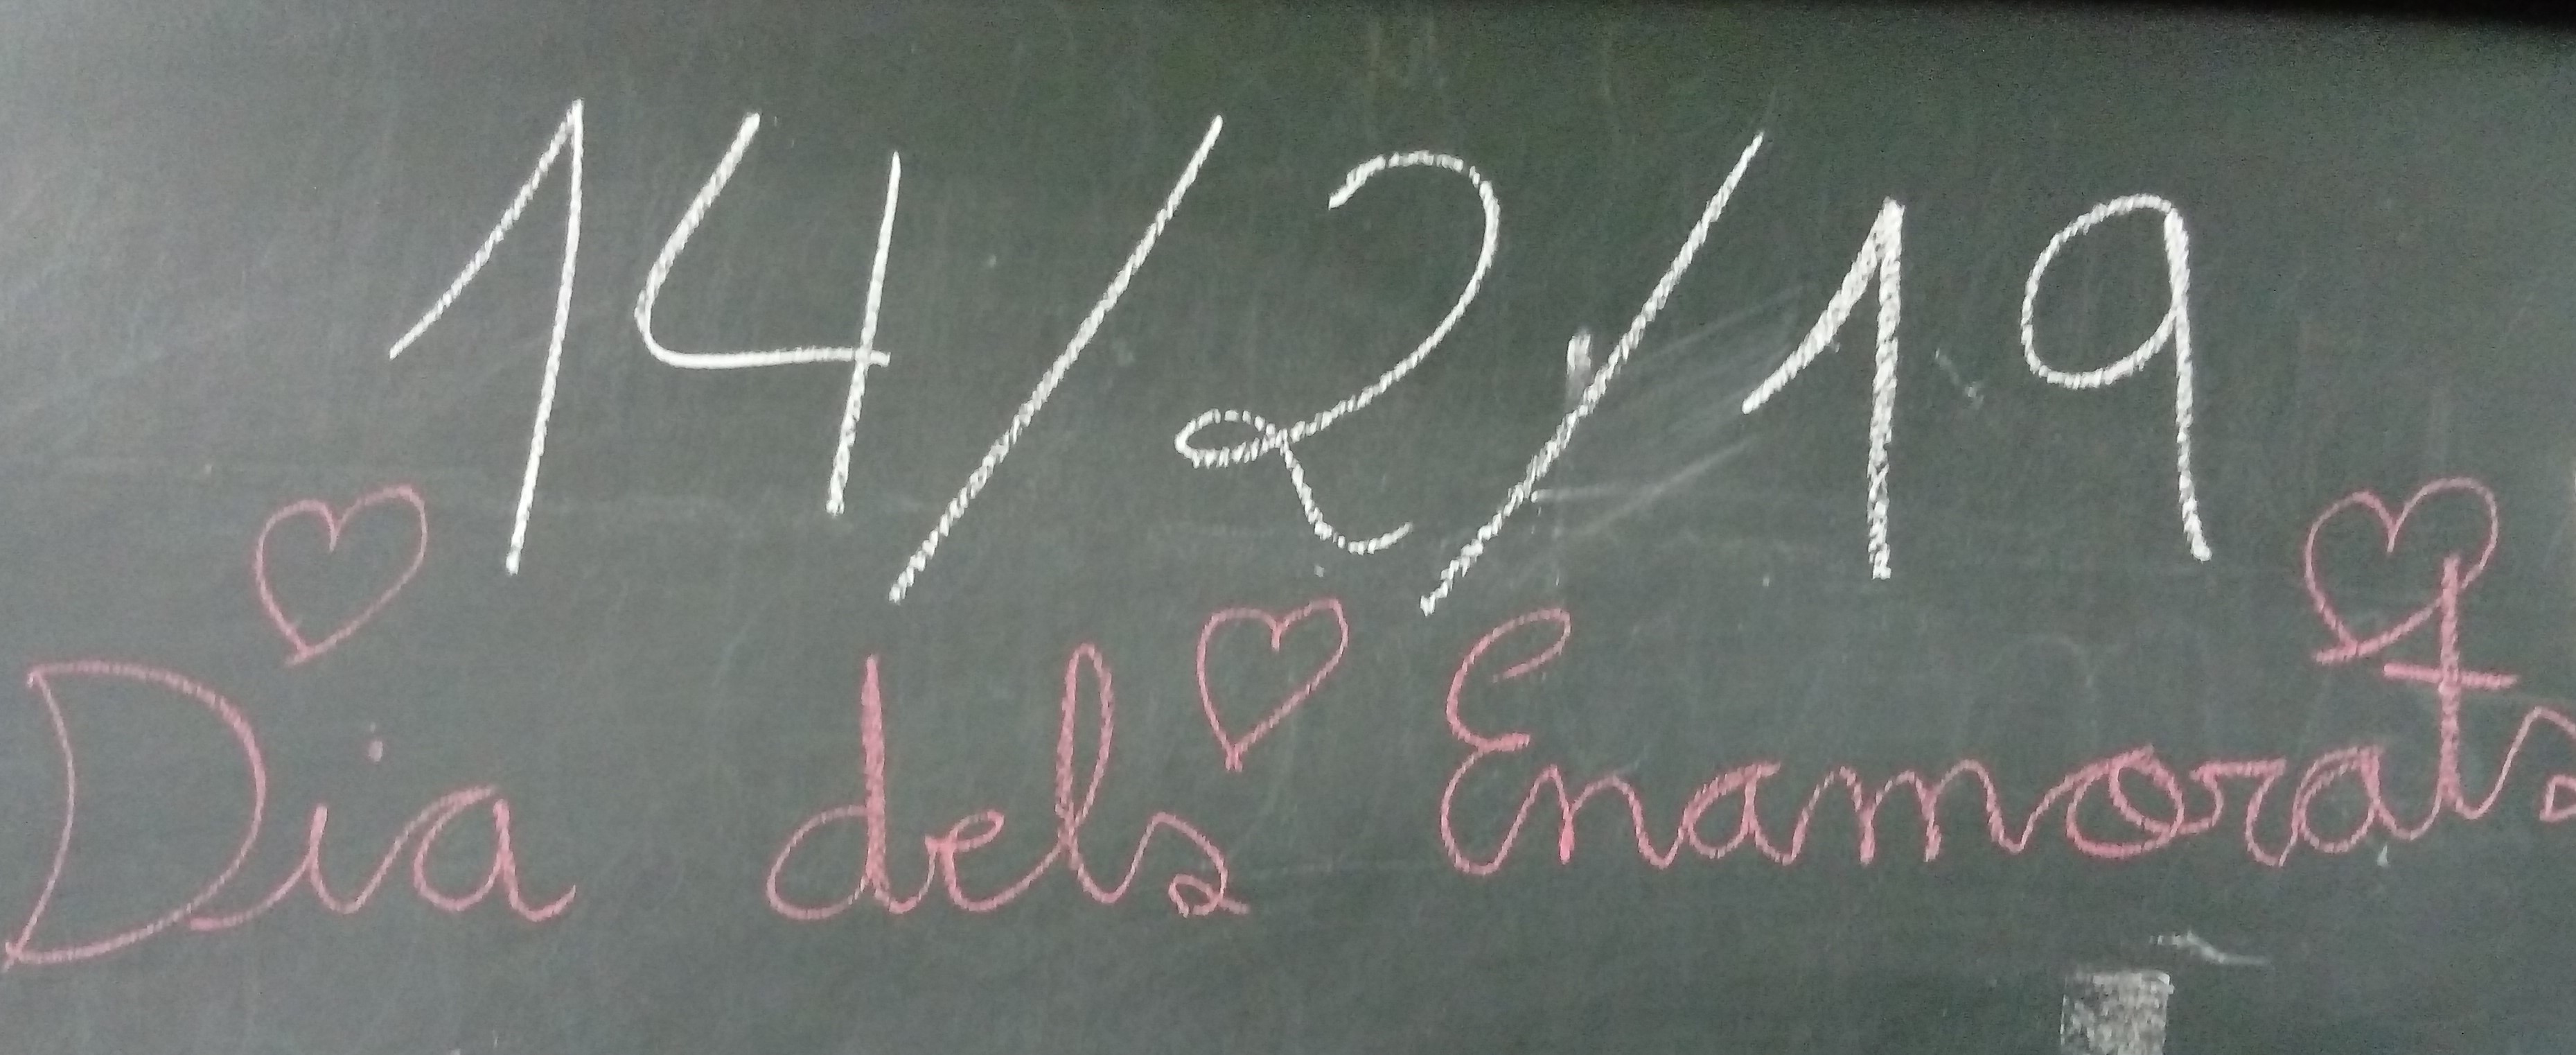 14/2/19
Dia dels Enamorats